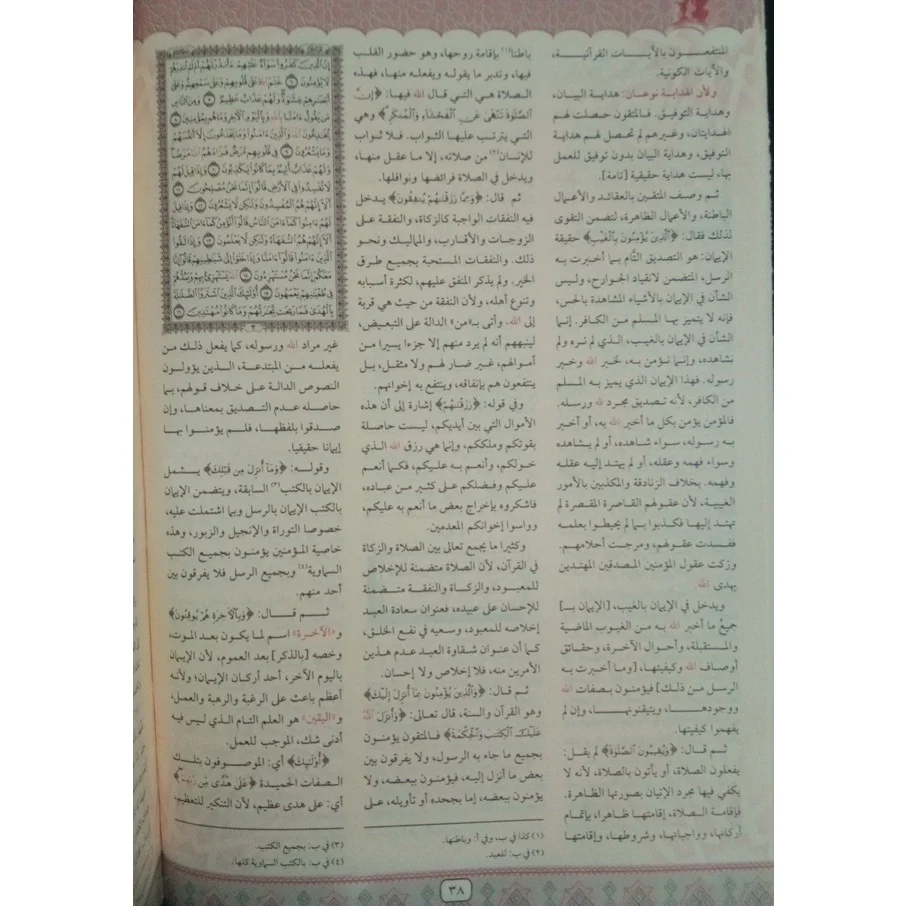 المنتفعـــون بالآيـــات القرآنيـــة،
والآيات الكونية.
ولأن الهداية نوعان: هداية البيان،
وهداية التوفيق. فالمتقون حصلت لهم
الهدايتان، وغيرهم لم تحصل لهم هداية
التوفيق، وهداية البيان بدون توفيق للعمل
بها، ليست هداية حقيقية [تامة].
ثم وصف المتقين بالعقائد والأعمال
الباطنة، والأعمال الظاهرة، لتضمن التقوى
لذلك فقال: ﴿الَّذِينَ يُؤْمِنُونَ بِالْغَيْبِ﴾ حقيقة
الإيمان: هو التصديق التَّام بما أخبرت به
الرسل، المتضمن لانقياد الجوارح، وليس
الشأن في الإيمان بالأشياء المشاهدة بالحس،
فإنه لا يتميز بها المسلم من الكافر. إنما
الشأن في الإيمان بالغيب، الذي لم نره ولم
نشاهده، وإنما نؤمن به، لخبر الله وخبر
رسوله. فهذا الإيمان الذي يميز به المسلم
من الكافر، لأنه تصديق مجرد لله ورسله.
فالمؤمن يؤمن بكل ما أخبر الله به، أو أخبر
به رسوله، سواء شاهده، أو لم يشاهده
وسواء فهمه وعقله، أو لم يهتد إليه عقله
وفهمه. بخلاف الزنادقة والمكذبين بالأمور
الغيبية، لأن عقولهم القاصرة المقصرة لم
تهتد إليها فكذبوا بما لم يحيطوا بعلمه
ففسدت عقولهم، ومرجت أحلامهم.
وزكت عقول المؤمنين المصدقين المهتدين
بهدى الله
ويدخل في الإيمان بالغيب، [الإيمان بـ]
جميعُ ما أخبر الله به من الغيوب الماضية
والمستقبلة، وأحوال الآخرة، وحقائق
أوصاف الله وكيفيتها، [وما أخبرت به
الرسل من ذلك] فيؤمنون بصفات الله
ووجودها، ويتيقنونها، وإن لم
يفهموا كيفيتها.
ثم قال: ﴿وَيُقِيمُونَ الصَّلَاةَ﴾ لم يقل:
يفعلون الصلاة، أو يأتون بالصلاة، لأنه لا
يكفي فيها مجرد الإتيان بصورتها الظاهرة.
فإقامة الصلاة، إقامتها ظاهرا، بإتمام
أركانها، وواجباتها، وشروطها، وإقامتها
باطنا(١) بإقامة روحها، وهو حضور القلب
فيها، وتدبر ما يقوله ويفعله منها، فهذه
الصلاة هي التي قال الله فيها: ﴿إِنَّ
الصَّلَاةَ تَنْهَى عَنِ الْفَحْشَاءِ وَالْمُنكَرِ﴾ وهي
التي يترتب عليها الثواب. فلا ثواب
للإنسان(٢) من صلاته، إلا ما عقل منها،
ويدخل في الصلاة فرائضها ونوافلها.
ثم قال: ﴿وَمِمَّا رَزَقْنَاهُمْ يُنفِقُونَ﴾ يدخل
فيه النفقات الواجبة كالزكاة، والنفقة على
الزوجات والأقارب، والمماليك ونحو
ذلك. والنفقات المستحبة بجميع طرق
الخير. ولم يذكر المنفق عليهم، لكثرة أسبابه
وتنوع أهله، ولأن النفقة من حيث هي قربة
إلى الله، وأتى بـ«من» الدالة على التبعيض،
لينبههم أنه لم يرد منهم إلا جزءا يسيرا من
أموالهم، غير ضار لهم ولا مثقل، بل
ينتفعون هم بإنفاقه، وينتفع به إخوانهم.
وفي قوله: ﴿رَزَقْنَاهُمْ﴾ إشارة إلى أن هذه
الأموال التي بين أيديكم، ليست حاصلة
بقوتكم وملككم، وإنما هي رزق الله الذي
خولكم، وأنعم به عليكم، فكما أنعم
عليكم وفضلكم على كثير من عباده،
فاشكروه بإخراج بعض ما أنعم به عليكم،
وواسوا إخوانكم المعدمين.
وكثيرا ما يجمع تعالى بين الصلاة والزكاة
في القرآن، لأن الصلاة متضمنة للإخلاص
للمعبود، والزكاة والنفقة متضمنة
للإحسان على عبيده، فعنوان سعادة العبد
إخلاصه للمعبود، وسعيه في نفع الخلق،
كما أن عنوان شقاوة العبد عدم هذين
الأمرين منه، فلا إخلاص ولا إحسان.
ثم قال: ﴿وَالَّذِينَ يُؤْمِنُونَ بِمَا أُنزِلَ إِلَيْكَ﴾
وهو القرآن والسنة، قال تعالى: ﴿وَأَنزَلَ اللَّهُ
عَلَيْكَ الْكِتَابَ وَالْحِكْمَةَ﴾ فالمتقون يؤمنون
بجميع ما جاء به الرسول، ولا يفرقون بين
بعض ما أنزل إليه، فيؤمنون ببعضه، ولا
يؤمنون ببعضه، إما بجحده أو تأويله، على
(١) كذا في ب، وفي أ: وباطنها.
(٢) في ب: للعبد.
إِنَّ الَّذِينَ كَفَرُوا سَوَاءٌ عَلَيْهِمْ ءَأَنذَرْتَهُمْ أَمْ لَمْ تُنذِرْهُمْ
لَا يُؤْمِنُونَ ٦ خَتَمَ اللَّهُ عَلَى قُلُوبِهِمْ وَعَلَى سَمْعِهِمْ وَعَلَى
أَبْصَارِهِمْ غِشَاوَةٌ وَلَهُمْ عَذَابٌ عَظِيمٌ ٧ وَمِنَ النَّاسِ
مَن يَقُولُ ءَامَنَّا بِاللَّهِ وَبِالْيَوْمِ الْآخِرِ وَمَا هُم بِمُؤْمِنِينَ ٨
يُخَادِعُونَ اللَّهَ وَالَّذِينَ ءَامَنُوا وَمَا يَخْدَعُونَ إِلَّا أَنفُسَهُمْ
وَمَا يَشْعُرُونَ ٩ فِي قُلُوبِهِم مَّرَضٌ فَزَادَهُمُ اللَّهُ مَرَضًا
وَلَهُمْ عَذَابٌ أَلِيمٌ بِمَا كَانُوا يَكْذِبُونَ ١٠ وَإِذَا قِيلَ لَهُمْ
لَا تُفْسِدُوا فِي الْأَرْضِ قَالُوا إِنَّمَا نَحْنُ مُصْلِحُونَ ١١
أَلَا إِنَّهُمْ هُمُ الْمُفْسِدُونَ وَلَكِن لَّا يَشْعُرُونَ ١٢ وَإِذَا قِيلَ
لَهُمْ ءَامِنُوا كَمَا ءَامَنَ النَّاسُ قَالُوا أَنُؤْمِنُ كَمَا ءَامَنَ السُّفَهَاءُ
أَلَا إِنَّهُمْ هُمُ السُّفَهَاءُ وَلَكِن لَّا يَعْلَمُونَ ١٣ وَإِذَا لَقُوا
الَّذِينَ ءَامَنُوا قَالُوا ءَامَنَّا وَإِذَا خَلَوْا إِلَى شَيَاطِينِهِمْ قَالُوا إِنَّا
مَعَكُمْ إِنَّمَا نَحْنُ مُسْتَهْزِءُونَ ١٤ اللَّهُ يَسْتَهْزِئُ بِهِمْ وَيَمُدُّهُمْ
فِي طُغْيَانِهِمْ يَعْمَهُونَ ١٥ أُولَئِكَ الَّذِينَ اشْتَرَوُا الضَّلَالَةَ
بِالْهُدَى فَمَا رَبِحَت تِّجَارَتُهُمْ وَمَا كَانُوا مُهْتَدِينَ ١٦
غير مراد الله ورسوله، كما يفعل ذلك من
يفعله من المبتدعة، الذين يؤولون
النصوص الدالة على خلاف قولهم، بما
حاصله عدم التصديق بمعناها، وإن
صدقوا بلفظها، فلم يؤمنوا بها
إيمانا حقيقيا.
وقوله: ﴿وَمَا أُنزِلَ مِن قَبْلِكَ﴾ يشمل
الإيمان بالكتب(٣) السابقة، ويتضمن الإيمان
بالكتب الإيمان بالرسل وبما اشتملت عليه،
خصوصا التوراة والإنجيل والزبور، وهذه
خاصية المؤمنين يؤمنون بجميع الكتب
السماوية(٤) وبجميع الرسل فلا يفرقون بين
أحد منهم.
ثم قال: ﴿وَبِالْآخِرَةِ هُمْ يُوقِنُونَ﴾
و«الآخرة» اسم لما يكون بعد الموت،
وخصه [بالذكر] بعد العموم، لأن الإيمان
باليوم الآخر، أحد أركان الإيمان، ولأنه
أعظم باعث على الرغبة والرهبة والعمل،
و«اليقين» هو العلم التام الذي ليس فيه
أدنى شك، الموجب للعمل.
﴿أُولَئِكَ﴾ أي: الموصوفون بتلك
الصفات الحميدة ﴿عَلَى هُدًى مِن رَّبِّهِمْ﴾
أي: على هدى عظيم، لأن التنكير للتعظيم،
(٣) في ب: بجميع الكتب.
(٤) في ب: بالكتب السماوية كلها.
٣٨